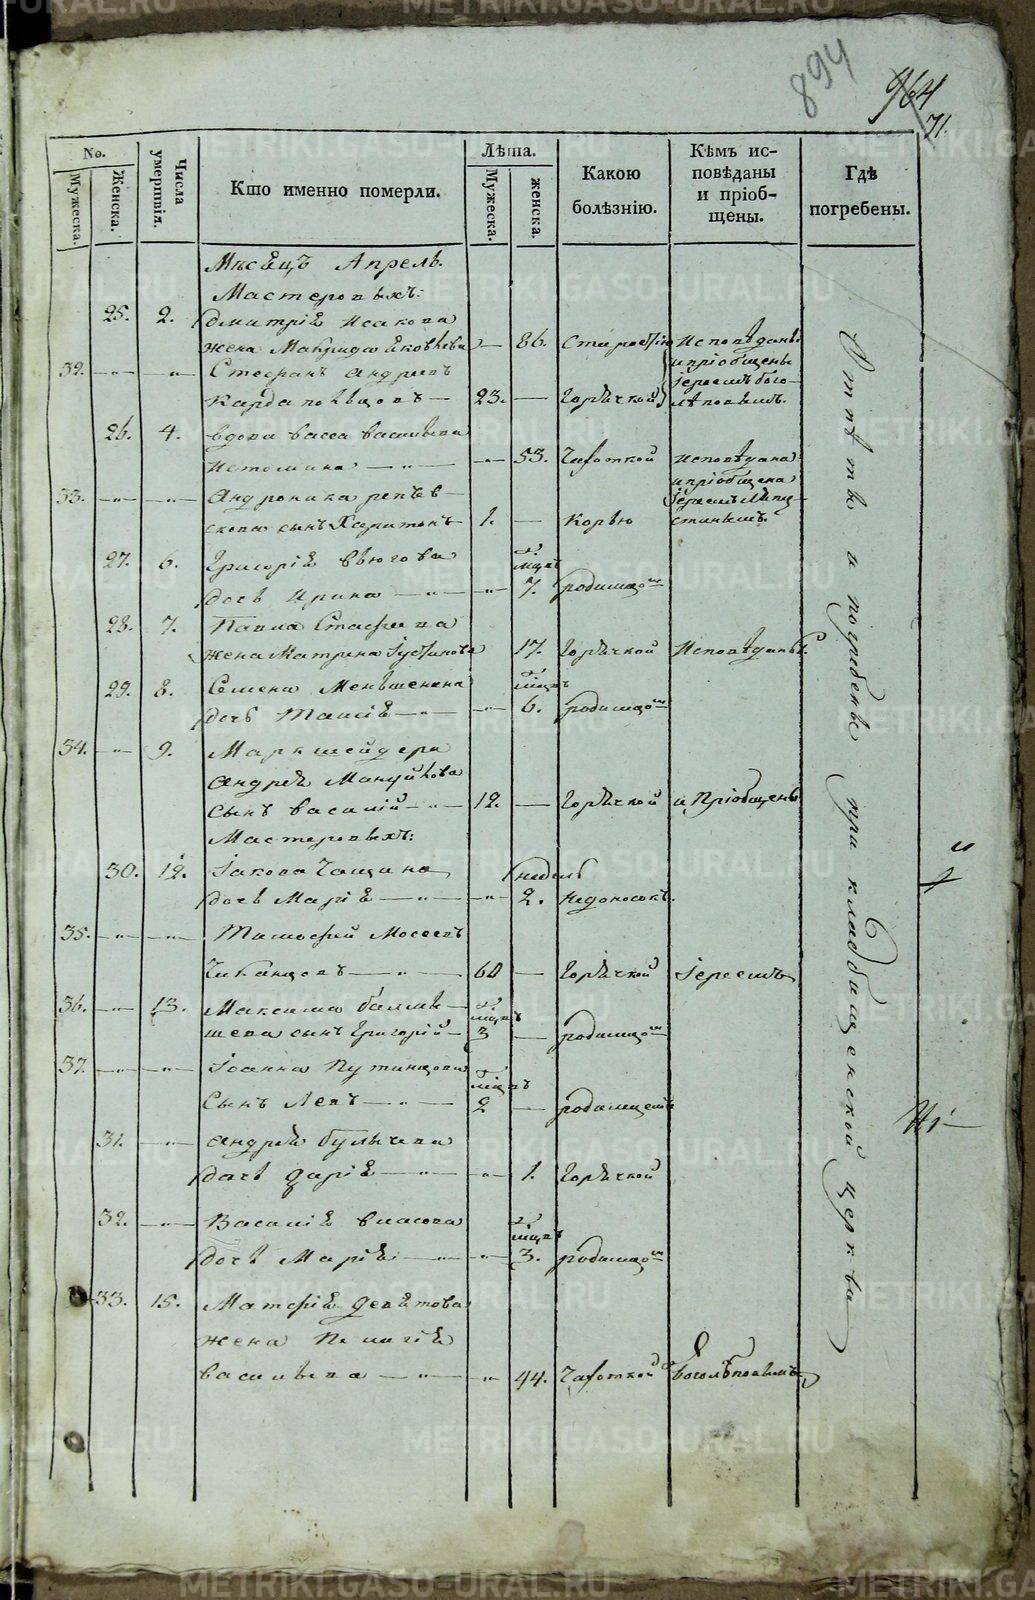 894
964
71.
No.
Мужеска.
Женска.
Числа умертвія.
Кто именно померли.
Лѣта.
Мужеска.
женска.
Какою болѣзнію.
Кѣмъ исповѣданы и пріобщены.
Гдѣ погребены.
Мѣсяцъ Апрель.
Мастеровыхъ:
25. 2. Дмитрія Исакова
жена Макрида Яковлева — 86. Старостію Исповѣданы
32. — „ — „ Стефанъ Андреевъ и пріобщены
Іереемъ Бого-
23. — Горячкой лѣповымъ.
26. 4. вдова Васса Васильева
Истомина — „ — „ 53. Чахоткой Исповѣдана
и пріобщена
33. — „ — „ — Андроника
Іереемъ
скова сынъ Харитонъ — 1. — Корью
27. 6. Григорія Вьюгова мцовъ
дочь Ирина — „ — „ 7. родимцомъ
28. 7. Павла
жена Матрина 17. Горячкой Исповѣданы
29. 8. Семена Меньшенина мцовъ
дочь Таисія — „ — „ 6. родимцомъ
34. — „ — 9. Маркшейдера
Андрея Мануйлова
сынъ Василій — „ — 12. — Горячкой и Пріобщены
Мастеровыхъ:
30. 12. Іакова Чащина недель
дочь Марія — „ — „ 2. Недоносокъ.
35. — „ — „ — Тимофей Мосеевъ
— „ — 60 — Горячкой Іереемъ
36. — „ — 13. Максима мцовъ
шева сынъ Григорій — 3 — родимцомъ
37. — „ — „ — Іоанна Путинцова мцовъ
Сынъ Левъ — „ — 2 — родимцемъ
31. — „ — Андрея Булычева
дочь Дарія — „ — „ 1. Горячкой
32. — „ — Василія Власова мцовъ
дочь Марія — „ — „ 3. родимцомъ
33. 15. Матфія Девятова
жена Пелагія
Васильева — „ — „ 44. Чахоткой Боголѣповымъ
Отпѣты и погребены при кладбищенской церкви
METRIKI.GASO-URAL.RU